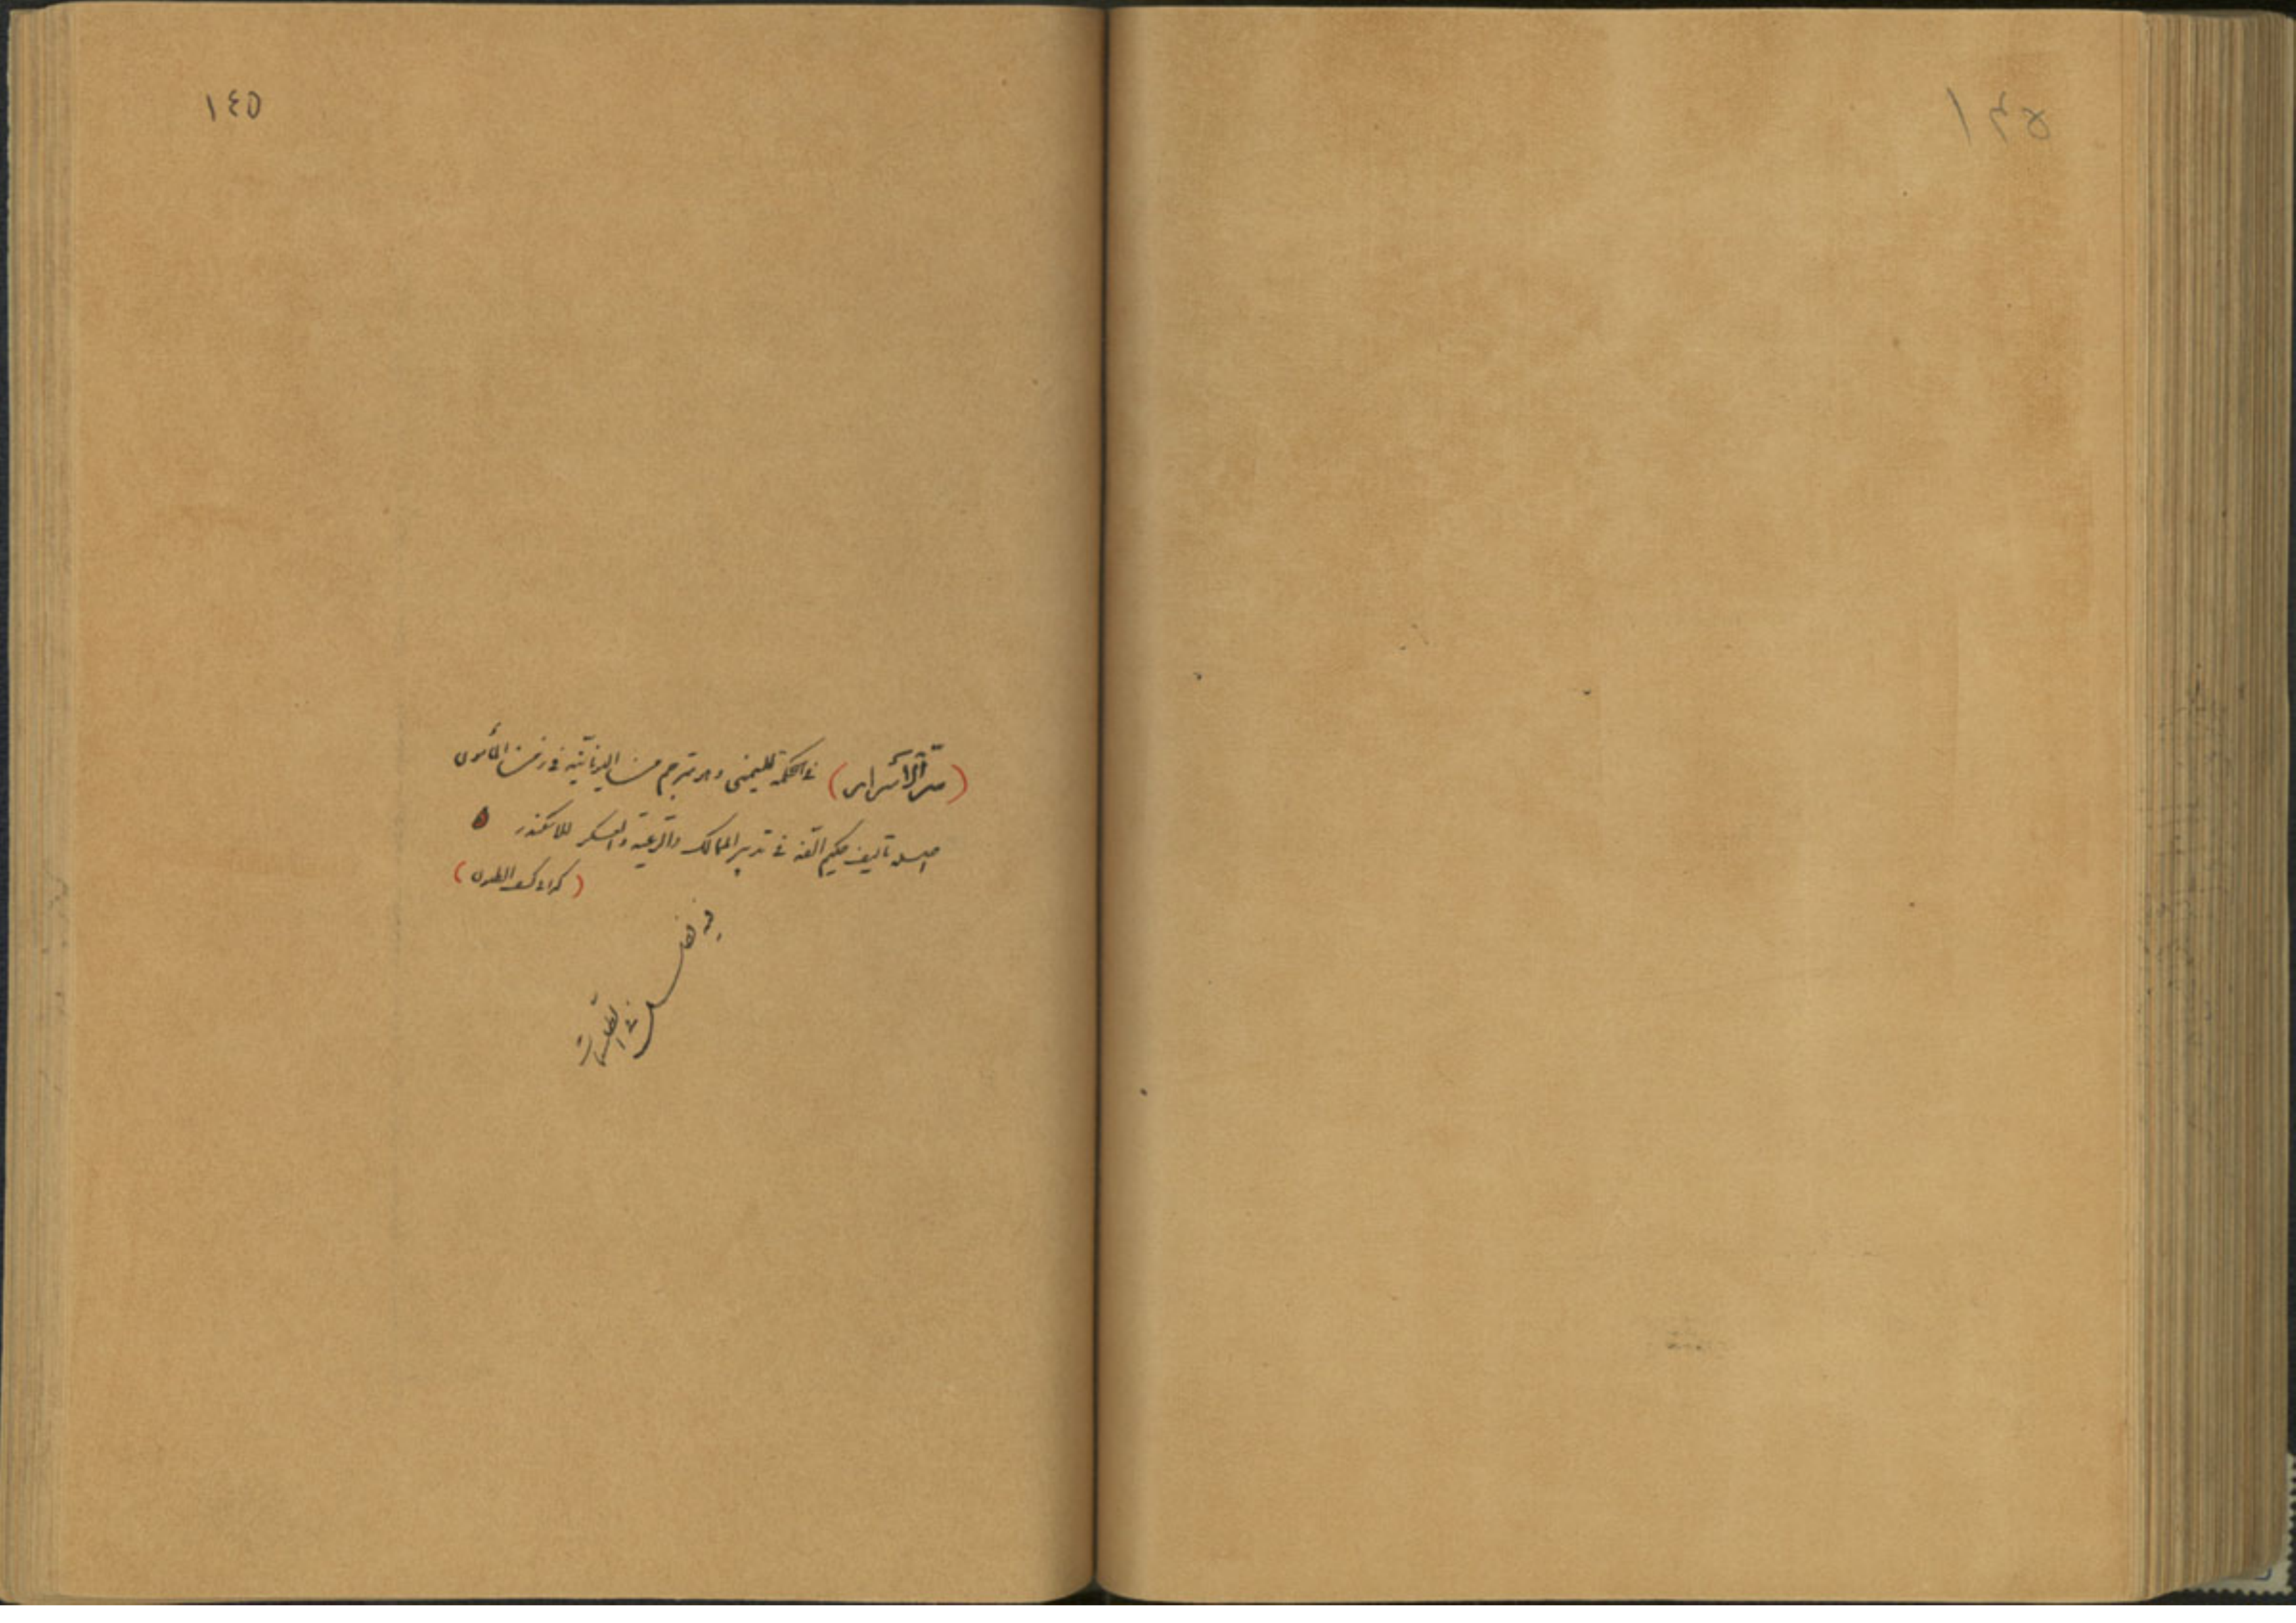 ١٤٥
(سرّ الأسرار) في الحكمة لليمنى وهو مترجم من اليونانيّة في زمن المأمون
اصله تأليف حكيم الّفه في تدبير الممالك والرّعيّة والعسكر للاسكندر
(كذا في كشف الظنون)
فيه فصل في الطلسمات